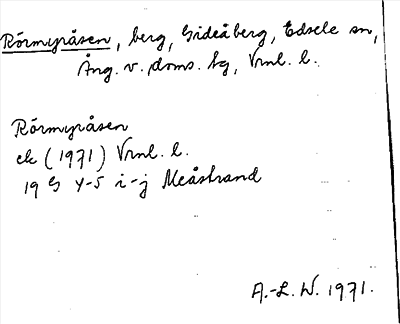 Rörmyråsen, berg, Gideåberg, Edsele sn,
Ång. v. doms. bg, Vrnl. l.
Rörmyråsen
ek (1971) Vrnl. l.
19 G 4-5 i-j Meåstrand
A.-L. W. 1971.